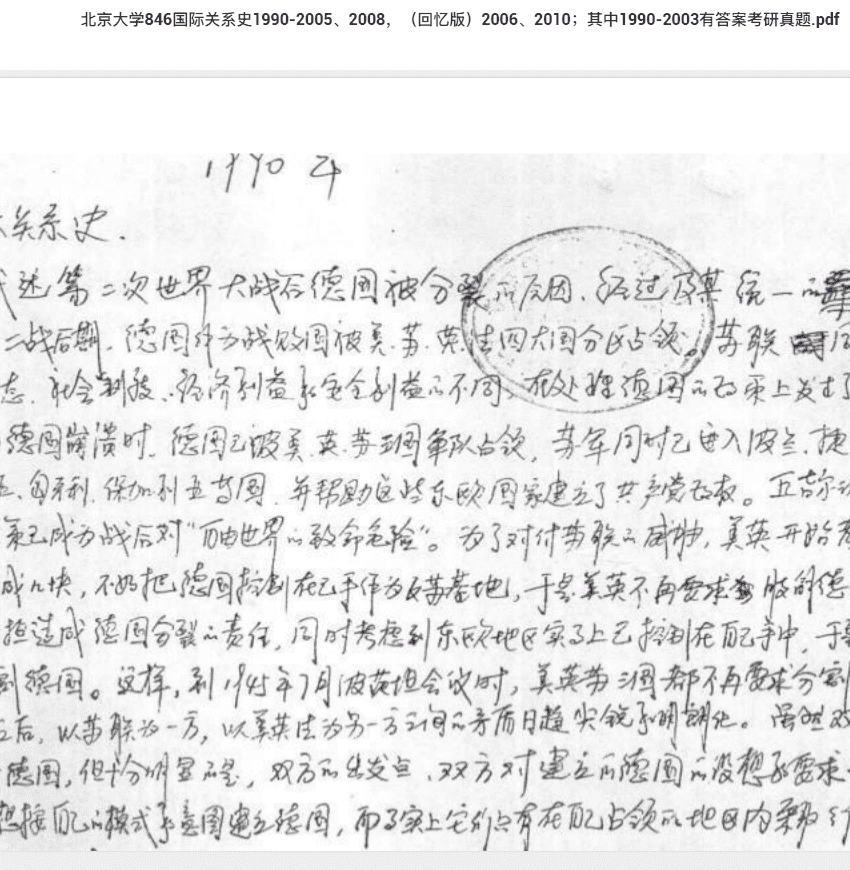 北京大学846国际关系史1990-2005、2008，（回忆版）2006、2010；其中1990-2003有答案考研真题.pdf
1990年
关系史.
述第二次世界大战后德国被分裂的原因、经过及其统一的
二战后期，德国作为战败国被美、苏、英、法四大国分区占领。苏联
社会制度、经济利益和安全利益的不同，在处理德国的政策上发生了
德国崩溃时，德国已被美、英、苏三国军队占领，苏军同时已进入波兰、捷
匈牙利、保加利亚等国，并帮助这些东欧国家建立了共产党政权。丘吉尔
已成为战后对“自由世界的致命危险”。为了对付苏联的威胁，美英开始
成几块，不如把德国控制在己手作为反苏基地，于是美英不再要求肢解德
担造成德国分裂的责任，同时考虑到东欧地区实际上已控制在自己手中，于是
德国。这样，到1945年7月波茨坦会议时，美英苏三国都不再要求分割
后，以苏联为一方，以美英法为另一方之间的矛盾日趋尖锐和明朗化。虽然双
德国，但十分明显的是，双方的出发点、双方对建立的德国的设想和要求
想按自己的模式和意图建立德国，而事实上它们只有在自己占领的地区内采取行